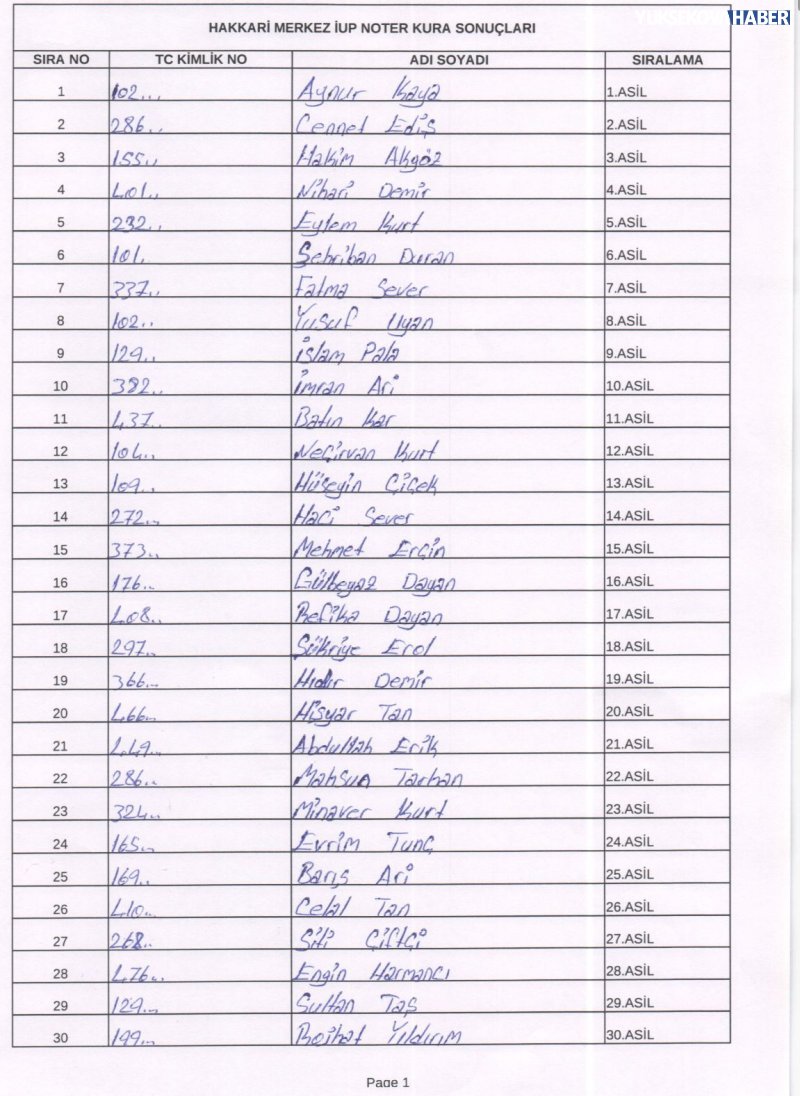 YÜKSEKOVA HABER
HAKKARİ MERKEZ İUP NOTER KURA SONUÇLARI
SIRA NO TC KİMLİK NO ADI SOYADI SIRALAMA
1 102... Aynur Kaya 1.ASİL
2 286.. Cennet Ediş 2.ASİL
3 155.. Hakim Akgöz 3.ASİL
4 401.. Nihari Demir 4.ASİL
5 232.. Eylem Kurt 5.ASİL
6 101. Şehriban Duran 6.ASİL
7 337.. Fatma Sever 7.ASİL
8 102.. Yusuf Uyan 8.ASİL
9 129.. İslam Pala 9.ASİL
10 382.. İmran Ari 10.ASİL
11 437.. Batın Kar 11.ASİL
12 104.. Neçirvan Kurt 12.ASİL
13 109.. Hüseyin Çiçek 13.ASİL
14 272... Haci Sever 14.ASİL
15 373.. Mehmet Erçin 15.ASİL
16 176.. Gülbeyaz Dayan 16.ASİL
17 408.. Refika Dayan 17.ASİL
18 297.. Şükriye Erol 18.ASİL
19 366... Hıdır Demir 19.ASİL
20 466... Hişyar Tan 20.ASİL
21 449... Abdullah Erik 21.ASİL
22 286... Mahsun Tarhan 22.ASİL
23 324... Minaver Kurt 23.ASİL
24 165... Evrim Tunç 24.ASİL
25 169.. Barış Ari 25.ASİL
26 410... Celal Tan 26.ASİL
27 268.. Siti Çiftçi 27.ASİL
28 476... Engin Harmancı 28.ASİL
29 129... Sultan Taş 29.ASİL
30 199... Rojhat Yıldırım 30.ASİL
Page 1